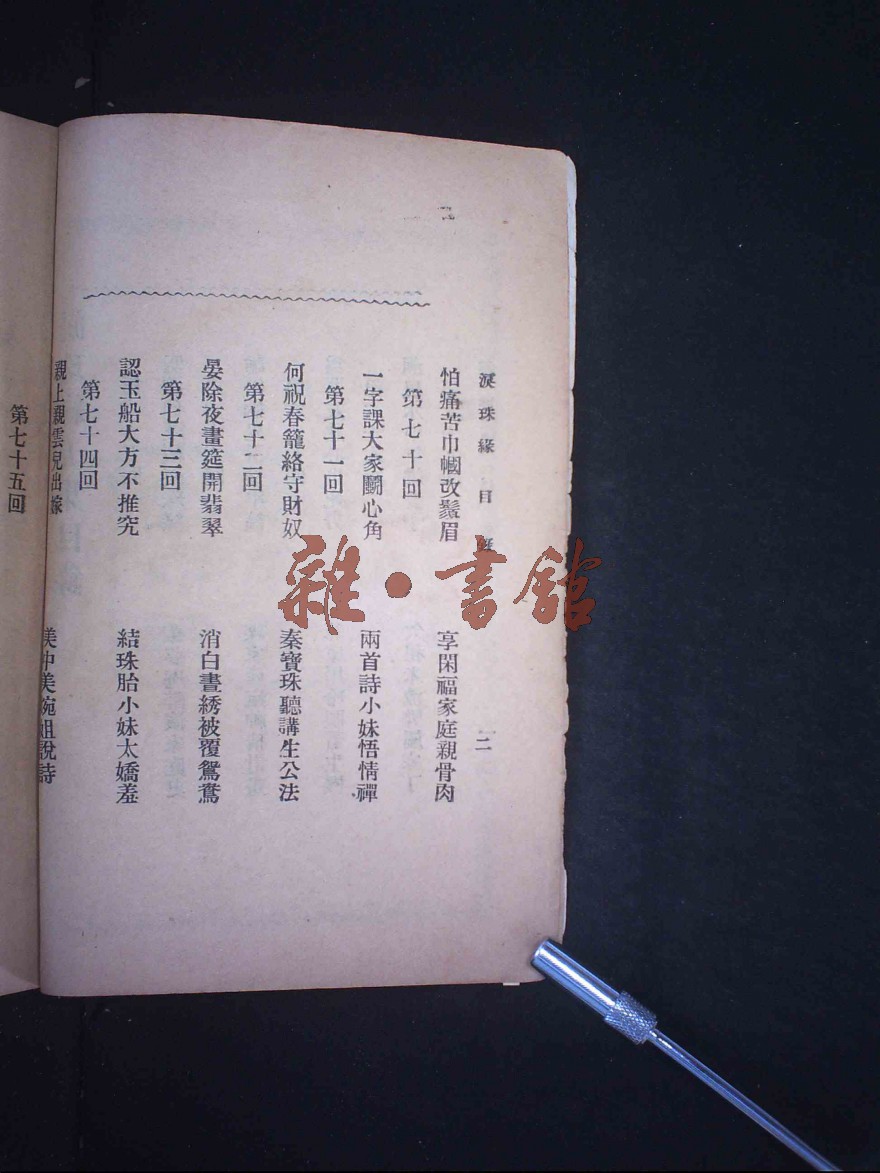 淚珠緣目 一二
怕痛苦巾幗改鬚眉 享閑福家庭親骨肉
第七十回
一字課大家鬭心角 兩首詩小妹悟情禪
第七十一回
何祝春籠絡守財奴 秦寶珠聽講生公法
第七十二回
晏除夜畫筵開翡翠 消白晝綉被覆鴛鴦
第七十三回
認玉船大方不推究 結珠胎小妹太嬌羞
第七十四回
親上親雲兒出嫁 美中美婉姐說詩
第七十五回
雜·書館